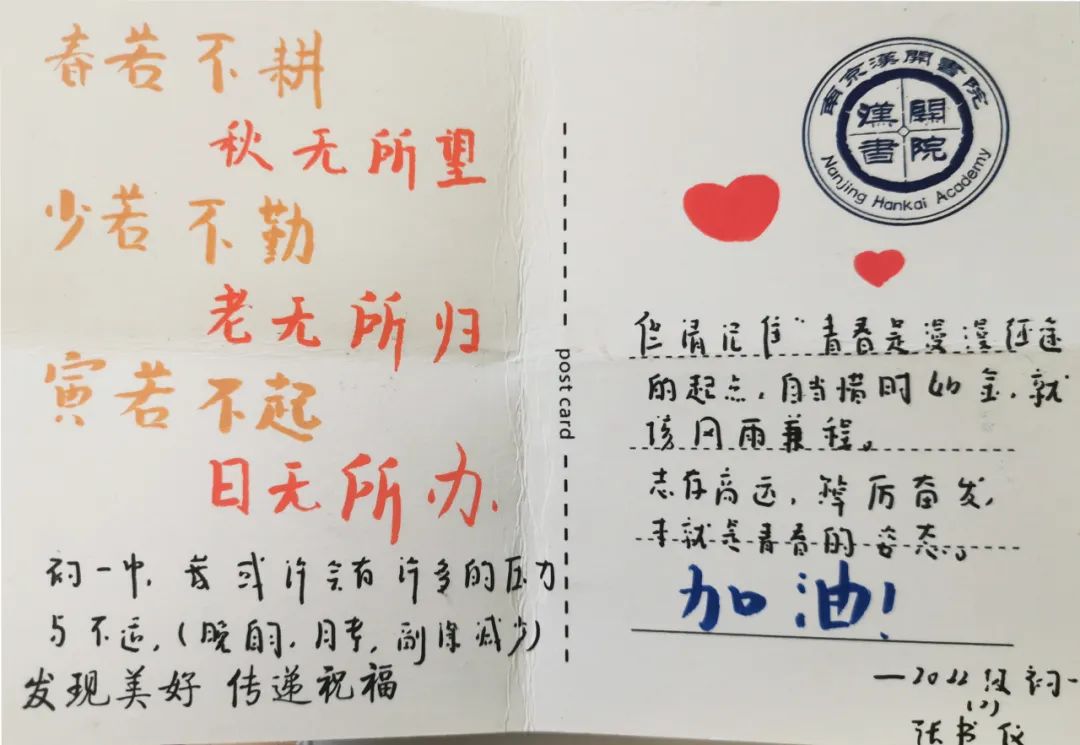 春若不耕
秋无所望
少若不勤
老无所归
寅若不起
日无所办.
初一中,或许会有许多的压力
与不适,(晚自习,月考,副课减少)
发现美好 传递祝福
南京漢開書院
漢開書院
Nanjing Hankai Academy
post card
但请记住"青春是漫漫征途
的起点,自当惜时如金,就
该风雨兼程。
志存高远,踔厉奋发,
本就是青春的姿态。"
加油!
—2022级初一
(2)
张书仪